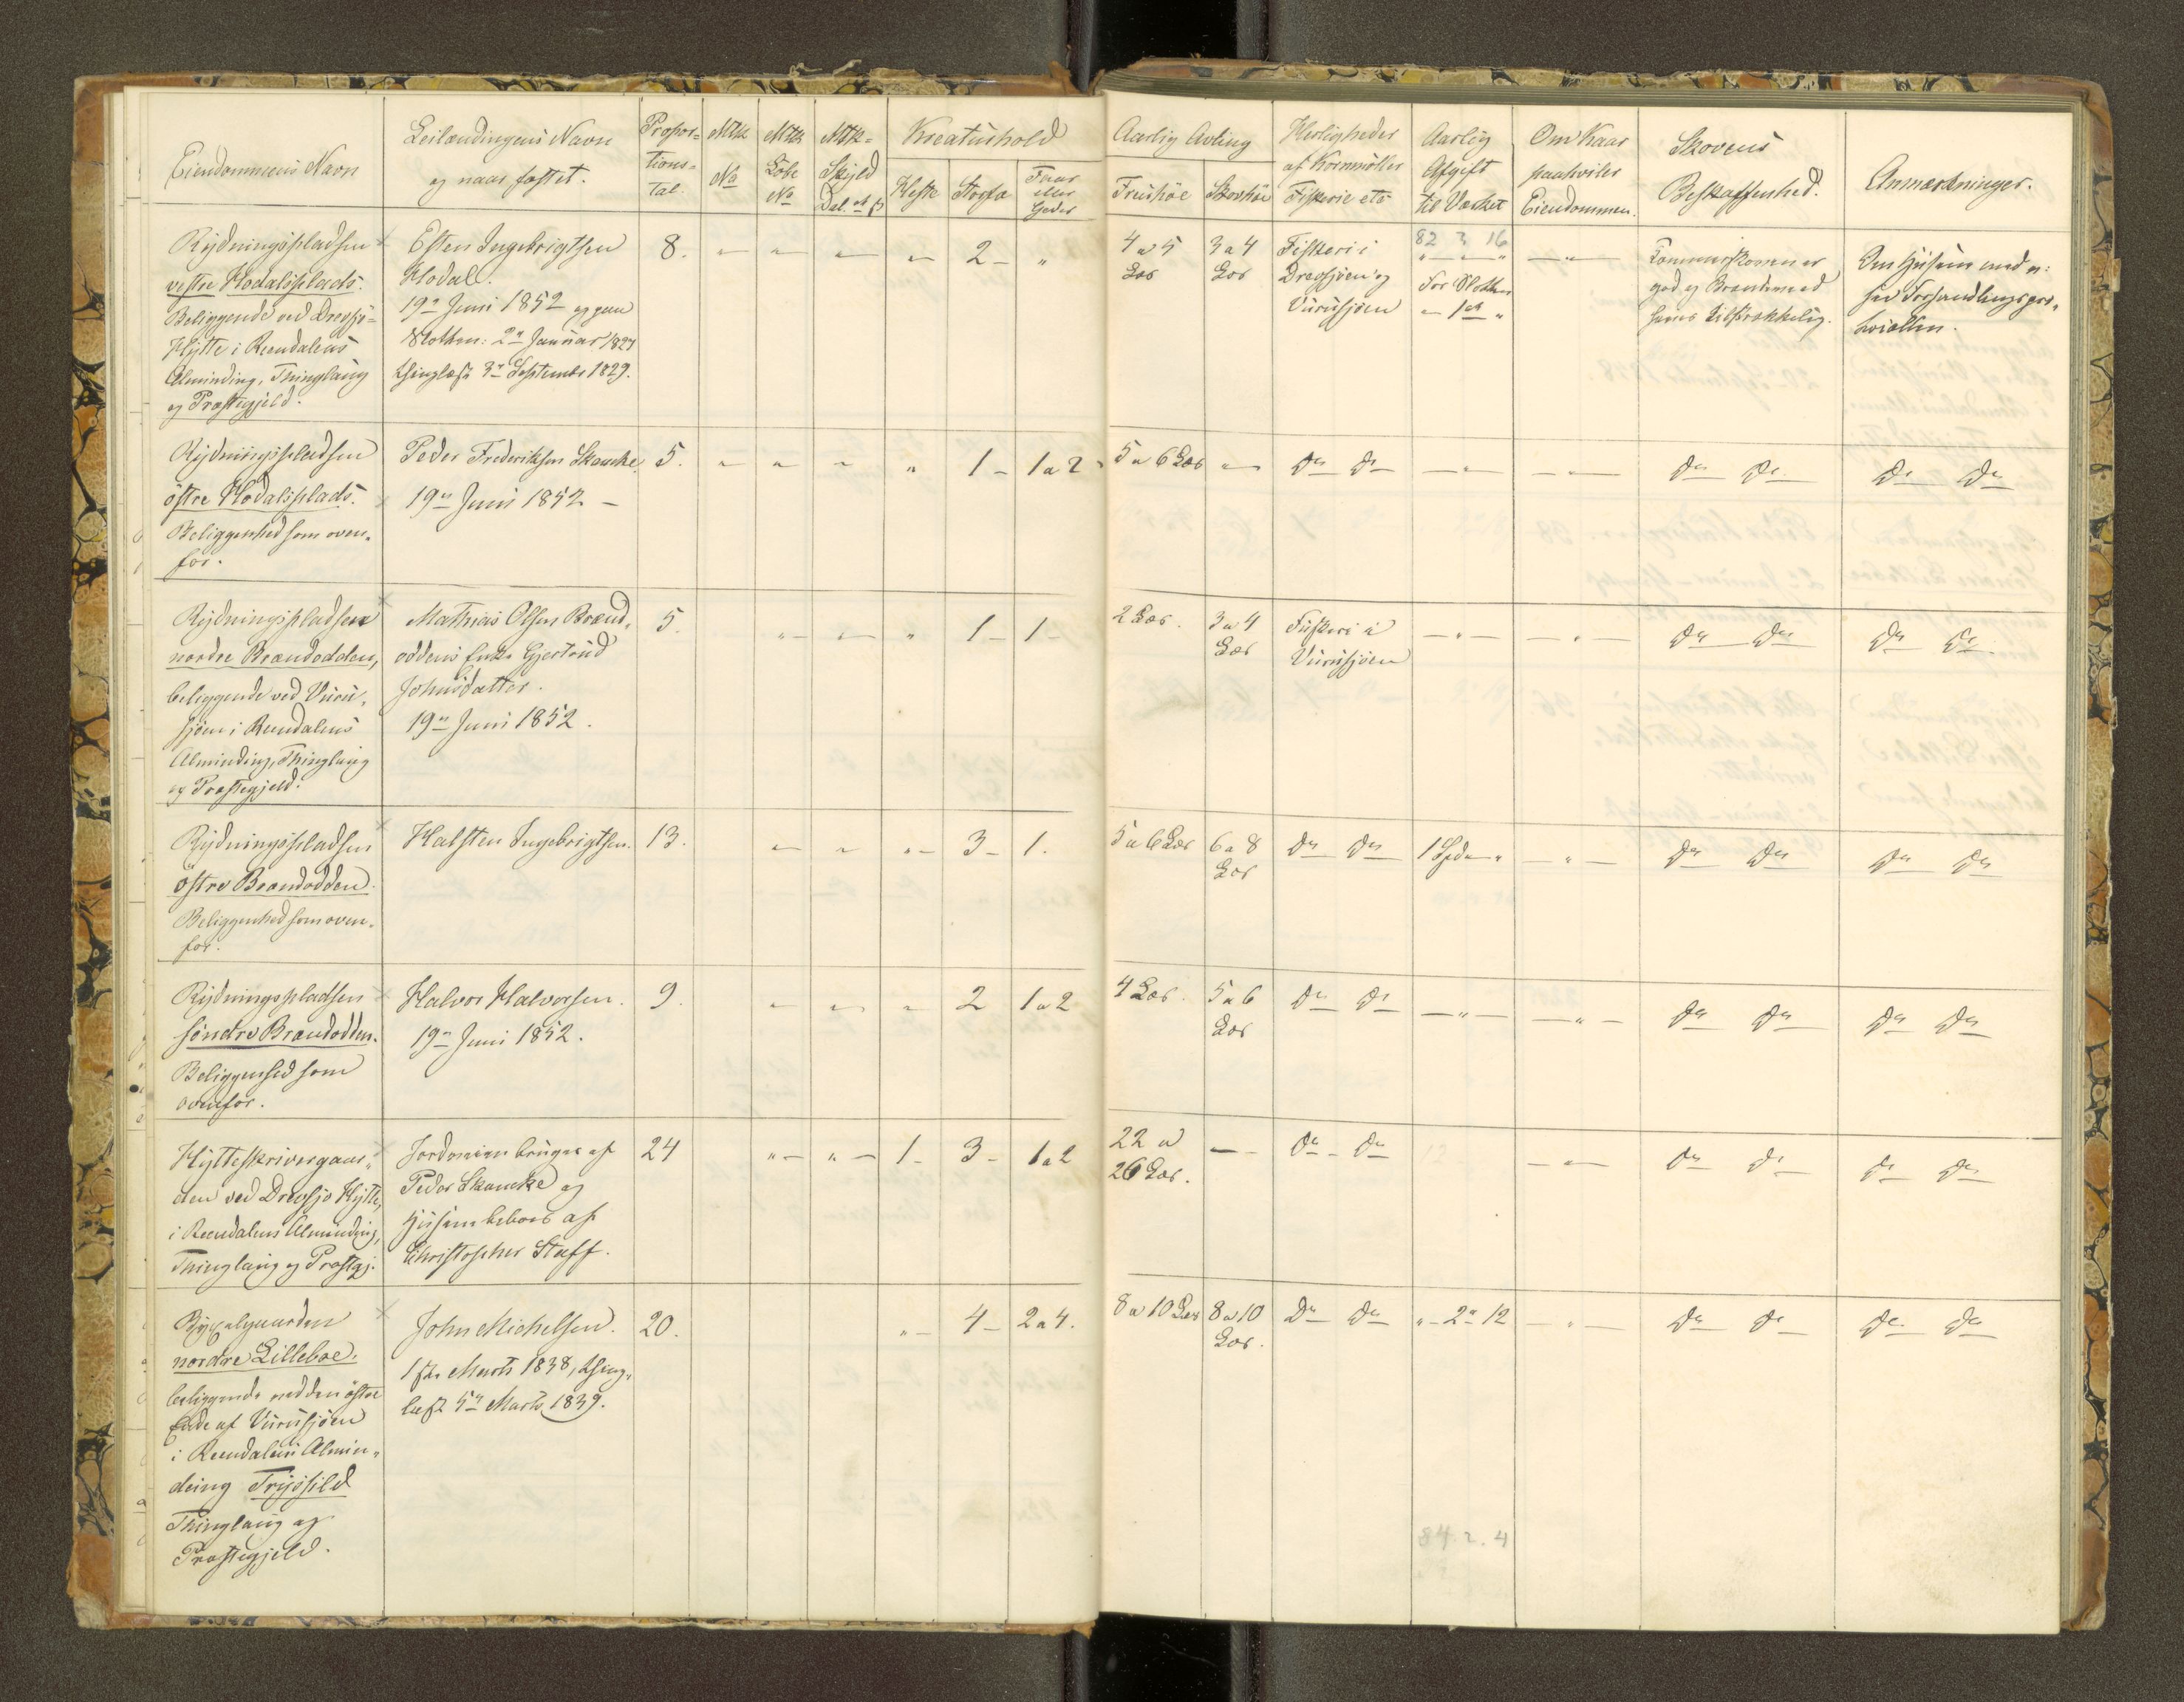 Eiendommens Navn
Leilændingens Navn
og naar fæstet.
Propor-
tions-
tal.
Mtk
No
Mtk
Løbe
No
Mtk-
Skyld
Dal. ort ß
Kreaturhold
Heste
Storfæ
Faar
eller
Geder
Aarlig Avling
Fröehöe
Skovhöe
Herligheder
af Kornmöller
Fiskerie etc
Aarlig
Afgift
til Værket
Om Kaar
paahviler
Eiendommen.
Skovens
Beskaffenhed.
Anmærkninger.
Rydningspladsen
vestre Hodalsplads.
Beliggende ved Drevsjö-
Hytte i Rendalens
Alminding, Thinglaug
og Præstegjeld.
Esten Ingebrigtsen
Hodal.
19de Juni 1852 og paa
Slotten: 2den Januar 1827
thinglæst 3die September 1829.
8. " " " " 2 - "
4 a 5
Læs
3 a 4
Læs
Fiskeri i
Drevsjöen og
Vurusjöen
82 3 16
" " "
For Slotten
" 1 ort "
"
Furuskoven er
god og Brændeved
haves tilstrækkelig.
Om Husene med n:
see Forhandlingspro-
tocollen.
Rydningspladsen
östre Hodalsplads.
Beliggenhed som oven-
for.
Peder Frederiksen Skancke
19de Juni 1852 -
5. " " " " 1 - 1 a 2
5 a 6 Læs " Do Do " " Do Do Do Do
Rydningspladsen
nordre Brændodden,
beliggende ved Vuru-
sjöen i Rendalens
Alminding, Thinglaug
og Præstegjeld.
Mathias Olsen Brænd-
oddens Enke Gjertrud
Johnsdatter.
19de Juni 1852.
5. " " " 1 - 1 -
2 Læs.
3 a 4
Læs
Fiskeri i
Vurusjöen
" " Do Do Do Do
Rydningspladsen
Östre Brændodden.
Beliggenhed som oven-
for.
Halsten Ingebrigtsen.
13. " " " 3 - 1.
5 a 6 Læs
6 a 8
Læs
Do Do 1 Spd " " Do Do Do Do
Rydningspladsen
söndre Brændodden.
Beliggenhed som
ovenfor.
Halvor Halvorsen.
19de Juni 1852.
9. " " " 2 1 a 2
4 Læs.
5 a 6
Læs
Do Do " " Do Do Do Do
Hytteskrivergaar-
den ved Drevsjö Hytte,
i Rendalens Alminding,
Thinglaug og Præstgj.
Jordveien bruges af
Peder Skancke og
Husene beboes af
Christopher Staff.
24 " " 1 - 3 - 1 a 2
22 a
26 Læs.
- Do Do 12 " Do Do Do Do
nordre Lilleboe.
beliggende ved den östre
Ende af Vurusjöen
i Rendalens Almin-
ding Trysild
Thinglaug og
Præstegjeld.
John Michelsen.
1ste Marts 1838, thing-
læst 5te Marts 1839.
20. " 4 - 2 a 4.
8 a 10 Læs
8 a 10
Læs.
Do Do " - 2 " 12 " Do Do Do Do
84. 2. 4